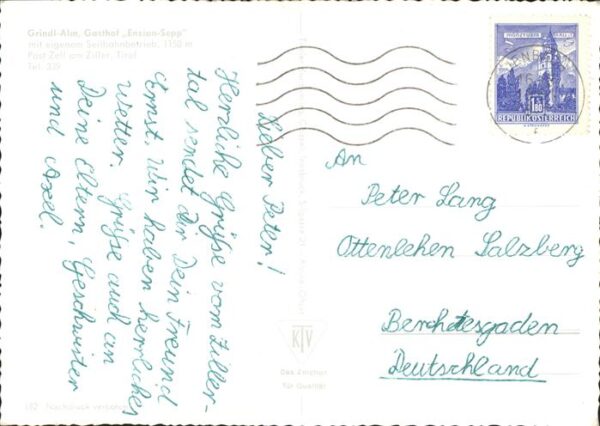 Grindl-Alm, Gasthof „Enzian-Sepp"
mit eigenem Seilbahnbetrieb, 1150 m
Post Zell am Ziller, Tirol
Tel. 339
Lieber Peter!
Herzliche Grüße vom Ziller-
tal sendet dir Dein Freund
Ernst. Wir haben herrliches
Wetter. Grüße auch an
Deine Eltern, Geschwister
und Axel.
1.80
REPUBLIK ÖSTERREICH
An
Peter Lang
Ottenlehen Salzberg
Berchtesgaden
Deutschland
KTV
Das Zeichen
für Qualität
Nachdruck verboten